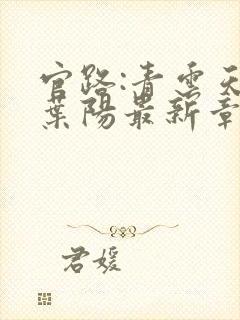 官路:青云天
葉陽最新章
君媛